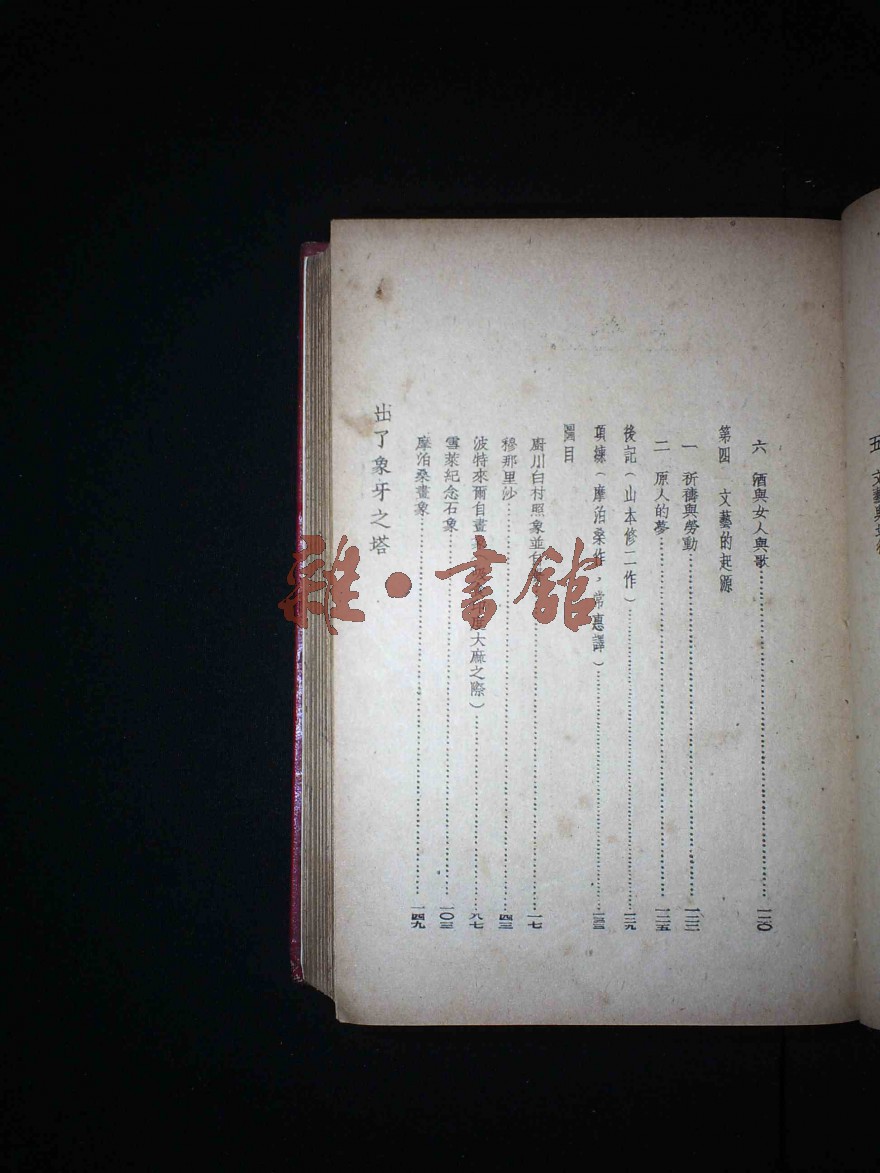 五　文藝與
六　酒與女人與歌……一二〇
第四　文藝的起源
一　祈禱與勞動……一二二
二　原人的夢……一二五
後記（山本修二作）……一二九
項鍊（摩泊桑作，常惠譯）……一三三
圖目
廚川白村照象並……一七
穆那里沙……四三
波特來爾自畫 大麻之際）……八七
雪萊紀念石象……一〇三
摩泊桑畫象……一四九
出了象牙之塔
雜·書館